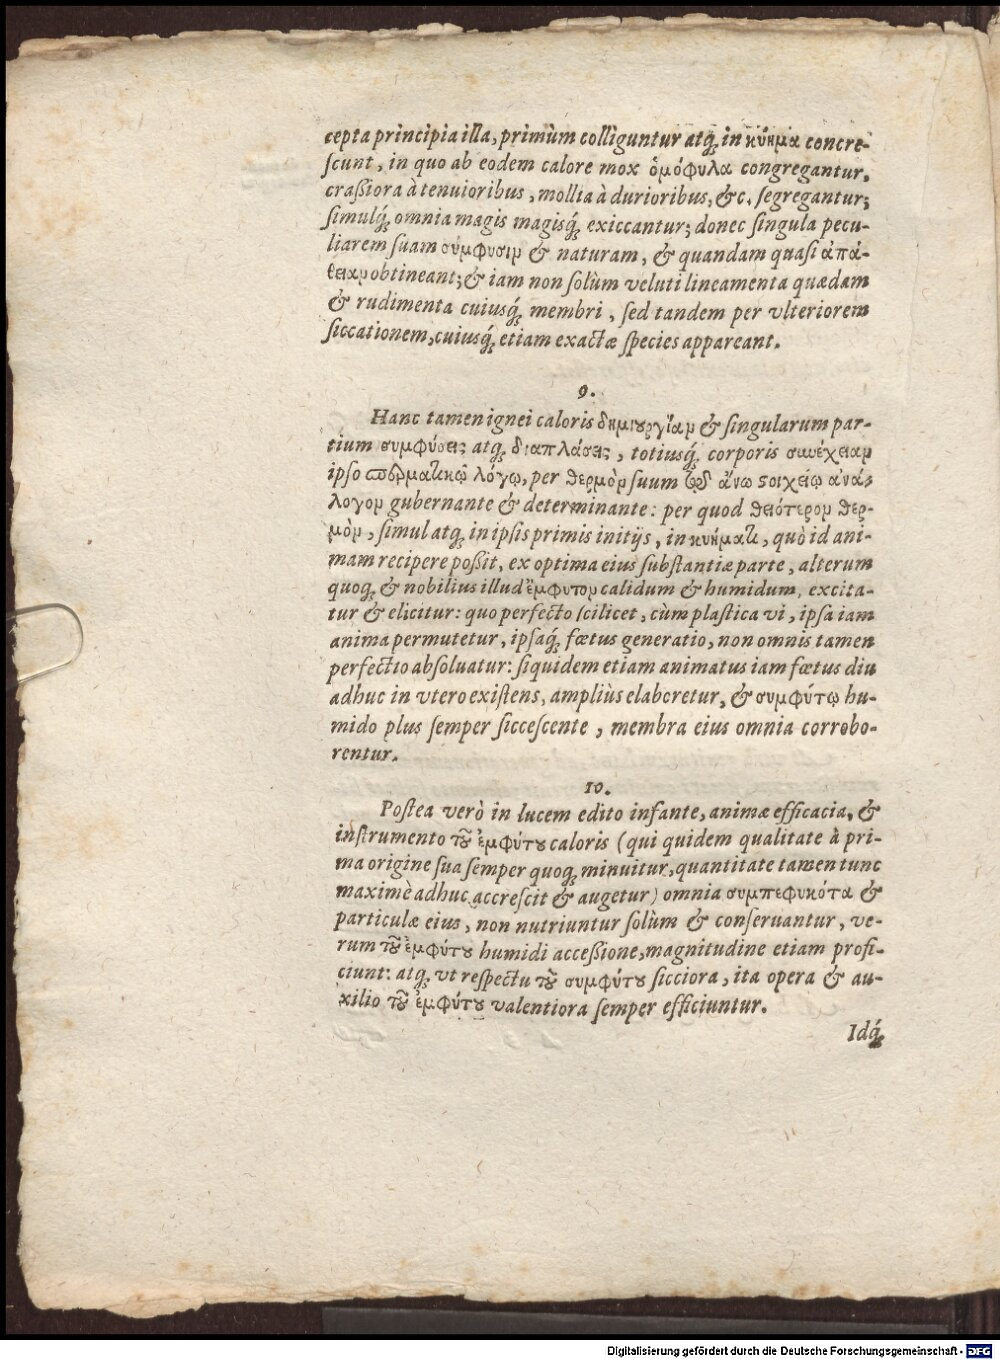 cepta principia illa, primùm colliguntur atq́; in κύημα concre-
scunt, in quo ab eodem calore mox ὁμόφυλα congregantur,
craßiora à tenuioribus, mollia à durioribus, &c. segregantur;
simulq́; omnia magis magisq́; exiccantur; donec singula pecu-
liarem suam σύμφυσιν & naturam, & quandam quasi ἀπά-
θειαν obtineant; & iam non solùm veluti lineamenta quædam
& rudimenta cuiusq́; membri, sed tandem per vlteriorem
siccationem, cuiusq́; etiam exactæ species appareant.
9.
Hanc tamen ignei caloris δημιουργίαν & singularum par-
tium συμφύσεις atq; διαπλάσεις, totiusq́; corporis συνέχειαν
ipso σπερματικῷ λόγῳ, per θερμὸν suum τῷ ἄνω στοιχείῳ ἀνά-
λογον gubernante & determinante: per quod θειότερον θερ-
μὸν, simul atq; in ipsis primis initijs, in κυήματι, quò id ani-
mam recipere poßit, ex optima eius substantiæ parte, alterum
quoq; & nobilius illud ἔμφυτον calidum & humidum, excita-
tur & elicitur: quo perfecto scilicet, cùm plastica vi, ipsa iam
anima permutetur, ipsaq́; fœtus generatio, non omnis tamen
perfectio absoluatur: siquidem etiam animatus iam fœtus diu
adhuc in vtero existens, ampliùs elaboretur, & συμφύτῳ hu-
mido plus semper siccescente, membra eius omnia corrobo-
rentur.
10.
Postea verò in lucem edito infante, animæ efficacia, &
instrumento τοῦ ἐμφύτου caloris (qui quidem qualitate à pri-
ma origine sua semper quoq; minuitur, quantitate tamen tunc
maximè adhuc accrescit & augetur) omnia συμπεφυκότα &
particulæ eius, non nutriuntur solùm & conseruantur, ve-
rum τοῦ ἐμφύτου humidi acceßione, magnitudine etiam profi-
ciunt: atq; vt respectu τοῦ συμφύτου sicciora, ita opera & au-
xilio τοῦ ἐμφύτου valentiora semper efficiuntur.
Idq́;
Digitalisierung gefördert durch die Deutsche Forschungsgemeinschaft - DFG